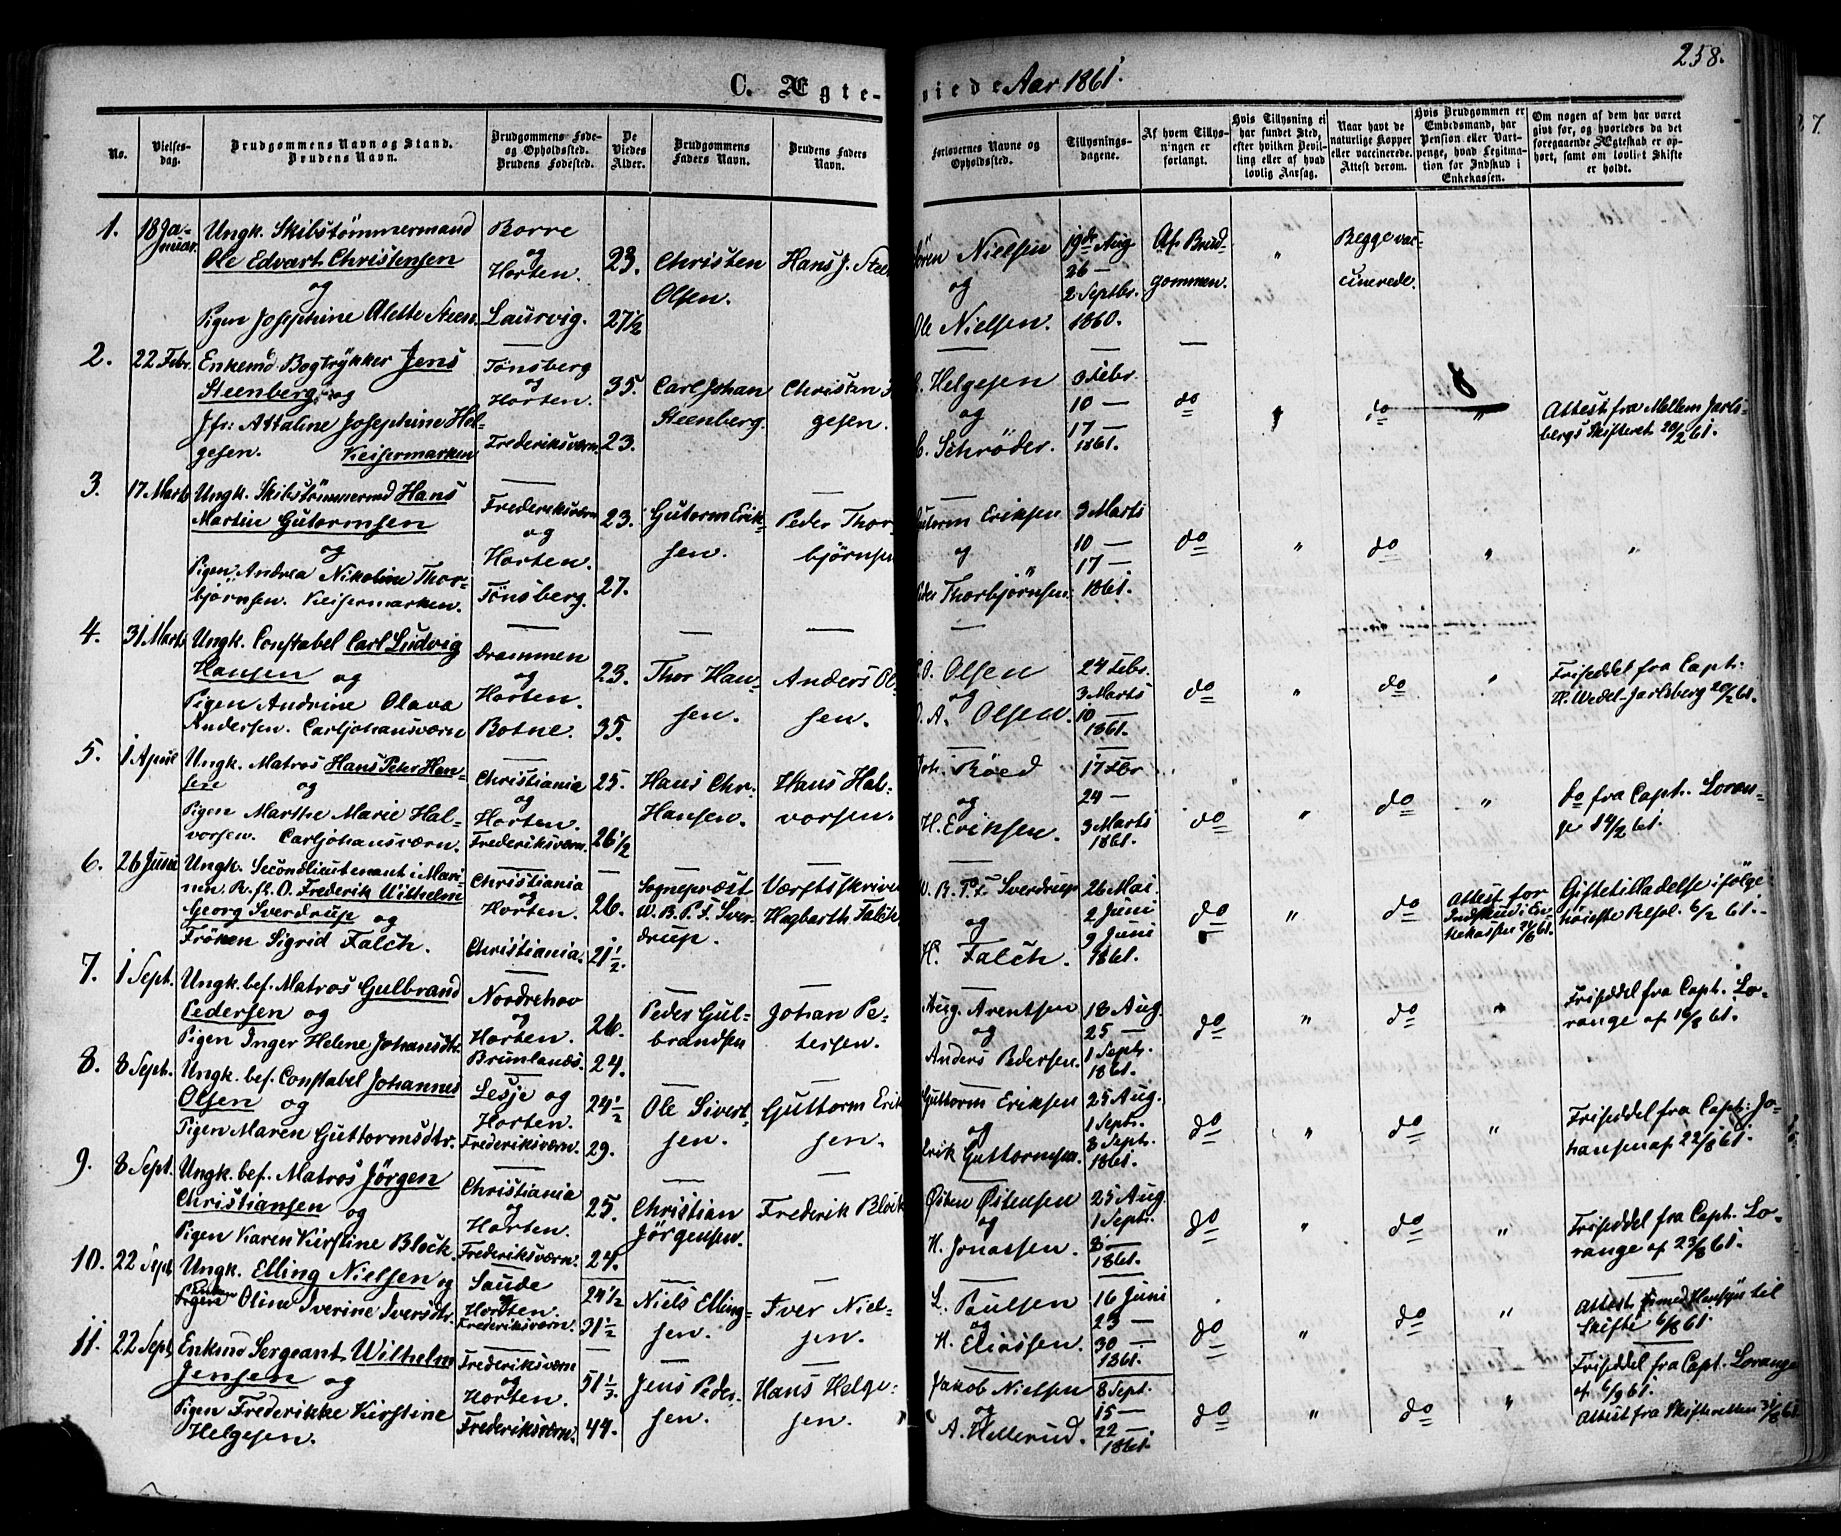 258.
C. Ægteviede Aar 1861.
No.
Vielses-
dag.
Brudgommens Navn og Stand.
Brudens Navn.
Brudgommens Føde-
og Opholdssted.
Brudens Fødested.
De
Viedes
Alder.
Brudgommens
Faders Navn.
Brudens Faders
Navn.
Forlovernes Navne og
Opholdssted.
Tillysnings-
dagene.
Af hvem Tillys-
ningen er
forlangt.
Hvis Tillysning ei
har fundet Sted,
efter hvilken Bevil-
ling eller af hvad
lovlig Aarsag.
Naar havt de
naturlige Kopper
eller vaccinerede.
Attest derom.
Hvis Brudgommen er
Embedsmand, har
Pension eller Vart-
penge, hvad Legitima-
tion for Indskud i
Enkekassen.
Om nogen af dem har været
givt før, og hvorledes da det
foregaaende Ægteskab er op-
hørt, samt om lovligt Skifte
er holdt.
1.
18 Ja-
nuar.
Ungk. Skibstømmermand
Ole Edvart Christensen
og
Pigen Josephine Alette Steen.
Borre
og
Horten.
Laurvig.
23.
27 1/2
Christen
Olsen.
Hans J. Steen
Sören Nielsen
og
Ole Nielsen.
19de Aug
26 —
2 Septbr.
1860.
Af Brud-
gommen.
"
Begge vac-
cinerede.
2.
22 Febr.
Enkemd Bogtrykker Jens
Steenberg og
Jfr: Attaline Josephine Hel-
gesen. Keisermarken
Tönsberg
og
Horten.
Frederiksværn
35.
23.
Carl Johan
Steenberg.
Christen
gesen.
C. Helgesen
og
C. Schröder.
3 Febr.
10 —
17 —
1861.
do
"
do
8
"
Attest fra Mellem Jarls-
bergs Skifteret 20/2 61.
3.
17 Marts
Ungk. Skibstömmermd Hans
Martin Gutormsen
og
Pigen Andrea Nikoline Thor-
björnsen. Keisermarken.
Frederiksværn
og
Horten.
Tönsberg.
23.
27.
Gutorm Erik-
sen.
Peder Thor-
björnsen
Gutorm Eriksen
og
Peder Thorbjörnsen.
3 Marts
10 —
17 —
1861.
do
"
do
"
"
4.
31 Marts
Ungk. Constabel Carl Ludvig
Hansen og
Pigen Andrine Olava
Andersen. Carljohansværn
Drammen
og
Horten.
Botne.
23.
35.
Thor Han-
sen.
Anders Ol-
sen.
Olsen
og
O. A. Olsen.
24 Febr.
3 Marts
10 —
1861.
do
"
do
"
Friseddel fra Capt:
H. Wedel Jarlsberg 20/2 61.
5.
1 April
Ungk. Matros Hans Peter Han-
sen og
Pigen Marthe Marie Hal-
vorsen. Carljohansværn.
Christiania
og
Horten.
Frederiksværn.
25.
26 1/2
Hans Chr.
Hansen.
Hans Hal-
vorsen.
Joh. Röed
og
H. Eriksen.
17 Febr
24 —
3 Marts
1861.
do
"
do
"
do fra Capt. Loran-
ge 14/2 61.
6.
26 Juni
Ungk. Secondlieutenant i Mari-
nen R. St. O. Frederik Wilhelm
Georg Sverdrup og
Fröken Sigrid Falch.
Christiania
og
Horten.
Christiania.
26.
21 1/2.
Sognepræst
W. B. P. F. Sver-
drup.
Værftsskriver
Hagbarth Falch
W. B. P. F. Sverdrup
og
H. Falch.
26 Mai
2 Juni
9 Juni
1861.
do
"
do
Attest for
Indskud i En-
kekassen 24/6 61.
Giftetilladelse ifölge
höieste Resol. 6/2 61.
7.
1 Sept.
Ungk. bef. Matros Gulbrand
Pedersen og
Pigen Inger Helene Johansdtr.
Nordrehov
og
Horten.
Brunlanæs.
26.
24.
Peder Gul-
brandsen
Johan Pe-
tersen.
Aug. Arentsen
og
Anders Pedersen.
18 Aug.
25 —
1 Septr.
1861.
do
"
do
"
Friseddel fra Capt. Lo-
range af 16/8 61.
8.
8 Sept.
Ungk. bef. Constabel Johannes
Olsen og
Pigen Maren Guttormsdtr.
Lesje og
Horten.
Frederiksværn.
24 1/2
29.
Ole Sivert-
sen.
Guttorm Erik
sen.
Guttorm Eriksen
og
Erik Guttormsen.
25 Aug.
1 Septr.
8 Septr.
1861.
do
"
do
"
Friseddel fra Capt: Jo-
hansen af 22/8 61.
9.
8 Sept.
Ungk. bef. Matros Jörgen
Christiansen og
Pigen Karen Kirstine Block.
Christiania
og
Horten.
Frederiksværn.
25.
24.
Christian
Jörgensen.
Frederik Block
Östen Östensen
og
H. Jonassen.
25 Aug.
1 Septr.
8 —
1861.
do
"
do
"
Friseddel fra Capt. Lo-
range af 23/8 61.
10.
22 Sept
Ungk. Elling Nielsen og
Enken
Pigen Oline Iverine Iversdtr.
Saude
og
Horten.
Frederiksværn.
24 1/2
31 1/2
Niels Elling-
sen.
Iver Niel-
sen.
L. Paulsen
og
H. Eliassen.
16 Juni
23 —
30 —
1861.
do
"
do
"
Attest med Hensyn til
Skifte 6/8 61.
11.
22 Sept.
Enkmd Sergeant Wilhelm
Jensen og
Pigen Frederikke Kirstine
Helgesen.
Frederiksværn
og
Horten.
Frederiksværn.
51 1/3
44.
Jens Peder-
sen.
Hans Helge-
sen.
Jakob Nielsen
og
A. Hellerud.
8 Sept.
15 —
22 —
1861.
do
"
do
"
Friseddel fra Capt. Lorange
af 6/9 61.
Attest fra Skifteretten 31/8 61.